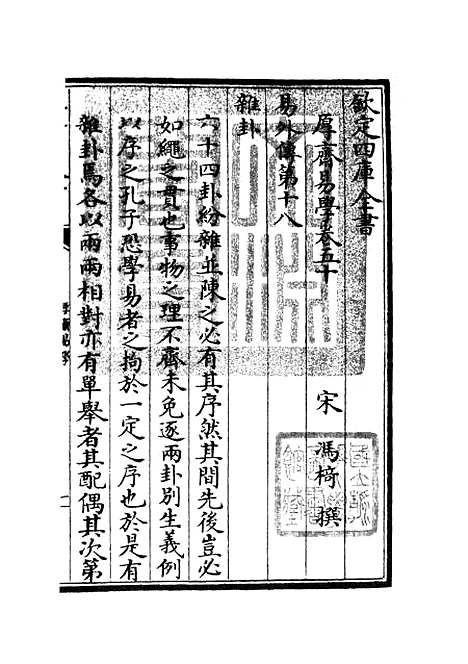 欽定四庫全書
厚齋易學卷五十
宋 馮椅 撰
易外傳第十八
雜卦
六十四卦紛雜並陳之必有其序然其間先後豈必
如繩之貫也事物之理不齊未免逐兩卦別生義例
以序之孔子恐學易者之拘於一定之序也於是有
雜卦焉各以兩兩相對亦有單舉者其配偶其次第